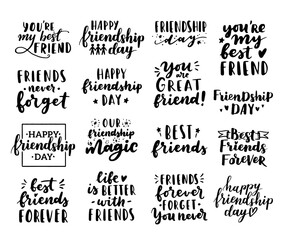 YOU'RE
my best
FRIEND
Happy
friendship
day
FRIENDSHIP
day
you're
my best
FRIEND
FRIENDS
never
forget
HAPPY
friendship
DAY
you
are
GREAT
friend!
FRIENDSHIP
DAY
HAPPY
friendship
DAY
OUR
friendship
is
Magic
BEST
friends
Best
Friends
Forever
best
friends
FOREVER
life
IS BETTER
-with-
FRIENDS
FRIENDS
forever
FORGET
you never
happy
friendship
day